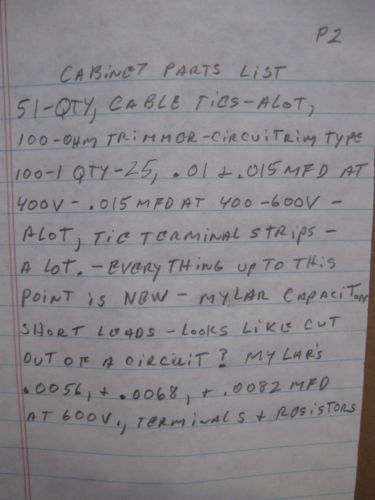 P2
CABINET PARTS LIST
51-QTY, CABLE TIES-ALOT,
100-OHM TRIMMER-CIRCUITRIM TYPE
100-1 QTY-25, .01 + .015 MFD AT
400V - .015 MFD AT 400-600V -
ALOT, TIE TERMINAL STRIPS -
A LOT. - EVERYTHING UP TO THIS
POINT IS NEW - MYLAR CAPACITORS
SHORT LEADS - LOOKS LIKE CUT
OUT OF A CIRCUIT? MYLAR'S
.0056, + .0068, + .0082 MFD
AT 600V., TERMINALS + RESISTORS